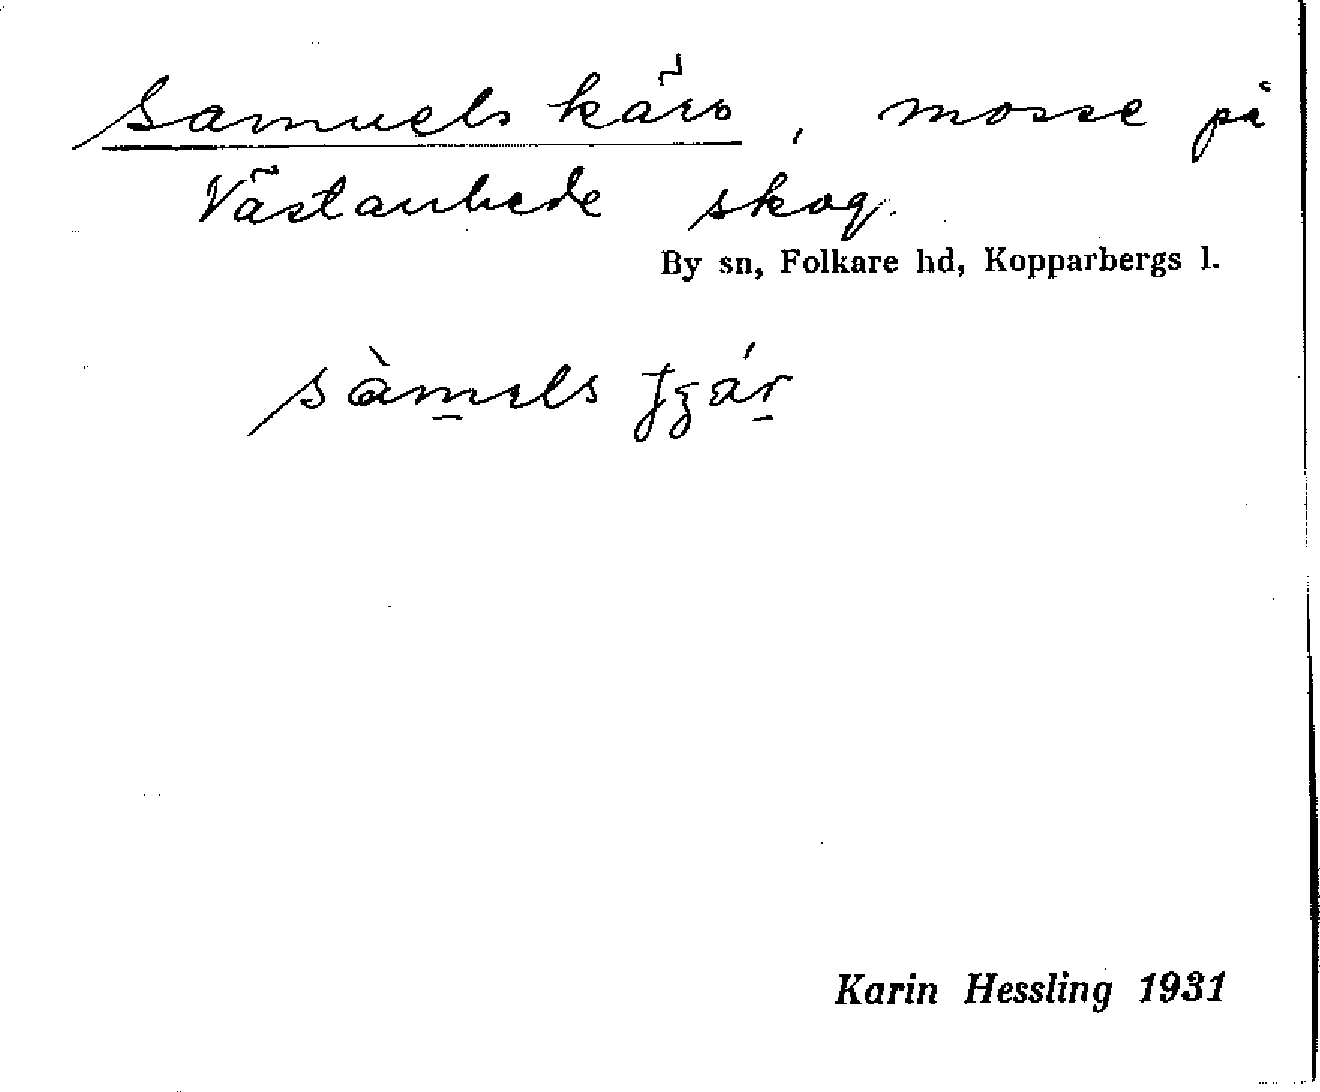 Samuelskärr, mosse på
Västanhede skog.
By sn, Folkare hd, Kopparbergs l.
Karin Hessling 1931